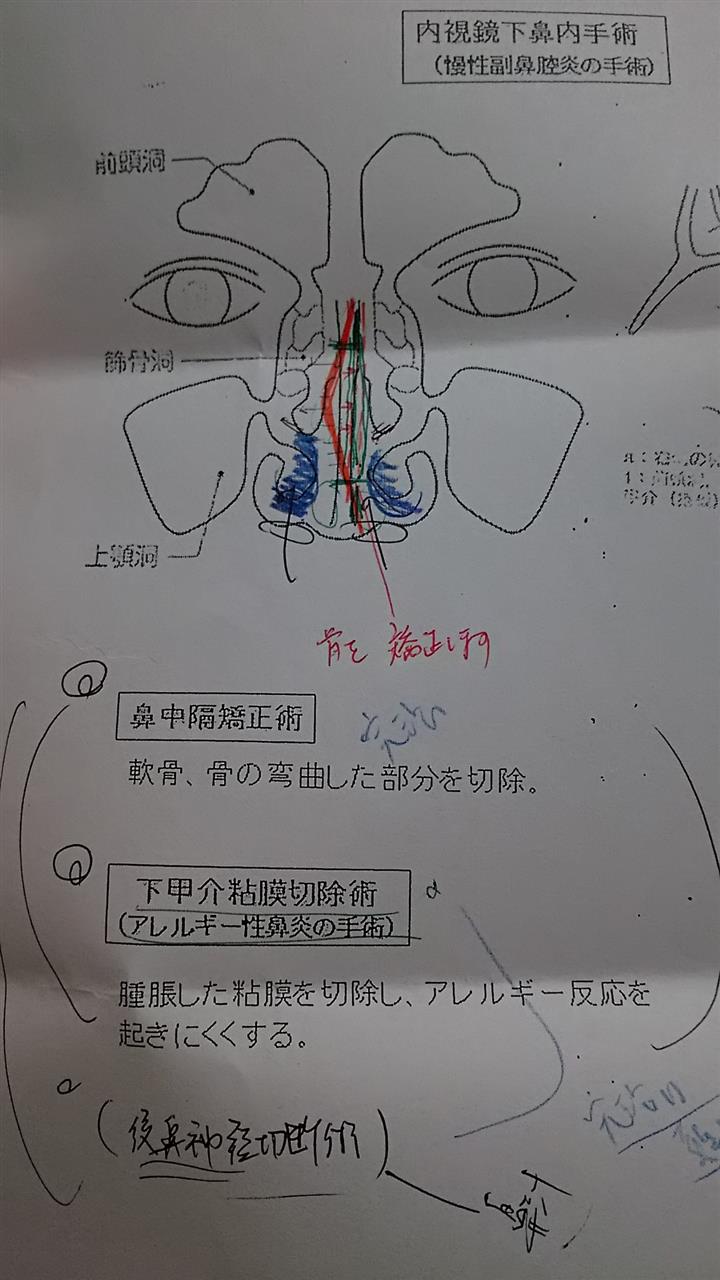 内視鏡下鼻内手術
(慢性副鼻腔炎の手術)
前頭洞
篩骨洞
上顎洞
骨を 矯正します
鼻中隔矯正術
軟骨、骨の弯曲した部分を切除。
下甲介粘膜切除術
(アレルギー性鼻炎の手術)
腫脹した粘膜を切除し、アレルギー反応を
起きにくくする。
(後鼻神経切断術)